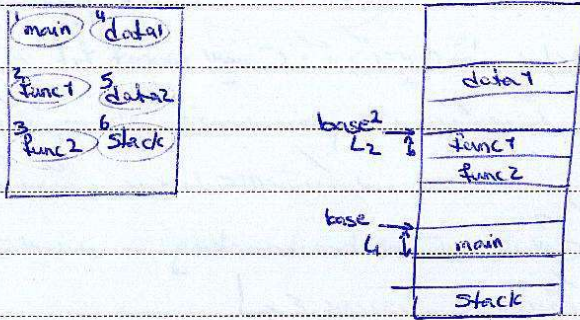 1 main 4 data1
2 func1 5 data2
3 func2 6 Stack
data1
base2
L2
func1
func2
base
L1
main
Stack